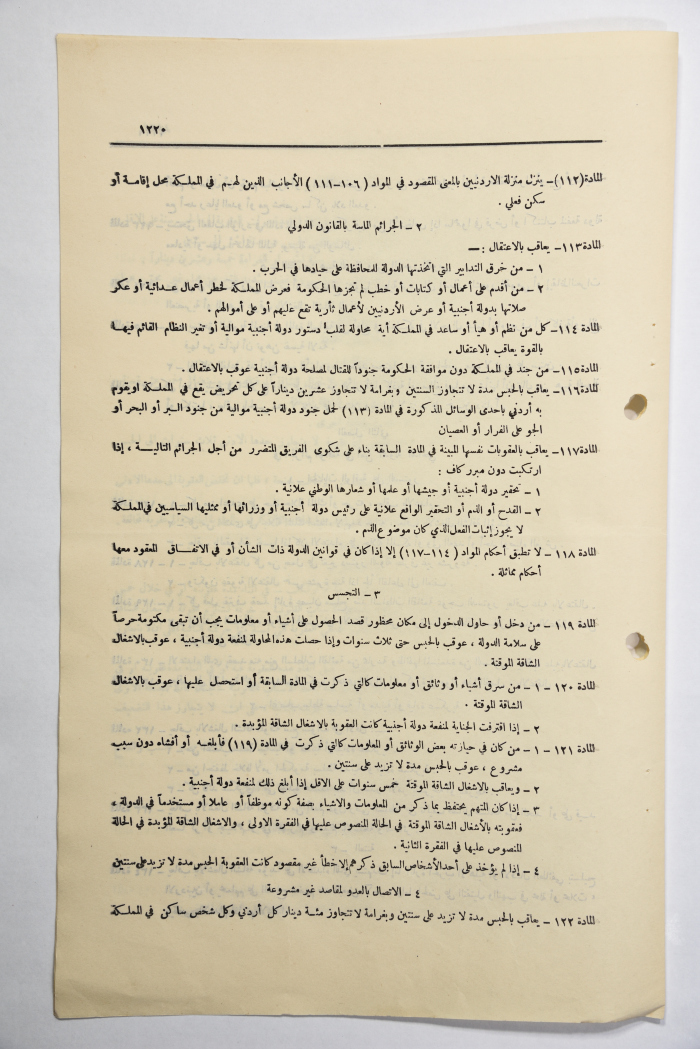 ١٢٢٠
المادة (١١٢)– ينزل منزلة الاردنيين بالمعنى المقصود في المواد (١٠٦–١١١) الأجانب الذين لهم في المملكة محل إقامة أو
سكن فعلي .
٢ – الجرائم الماسة بالقانون الدولي
المادة ١١٣– يعاقب بالاعتقال : —
١ – من خرق التدابير التي اتخذتها الدولة للمحافظة على حيادها في الحرب .
٢ – من أقدم على أعمال أو كتابات أو خطب لم تجزها الحكومة فعرض المملكة لخطر أعمال عدائية أو عكر
صلاتها بدولة أجنبية أو عرض الأردنيين لأعمال ثأرية تقع عليهم أو على أموالهم .
المادة ١١٤– كل من نظم أو هيأ أو ساعد في المملكة أية محاولة لقلب دستور دولة أجنبية موالية أو تغير النظام القائم فيها
بالقوة يعاقب بالاعتقال .
المادة ١١٥– من جند في المملكة دون موافقة الحكومة جنوداً للقتال لمصلحة دولة أجنبية عوقب بالاعتقال .
المادة ١١٦– يعاقب بالحبس مدة لا تتجاوز السنتين وبغرامة لا تتجاوز عشرين ديناراً على كل تحريض يقع في المملكة اويقوم
به أردني باحدى الوسائل المذكورة في المادة (١١٣) لحمل جنود دولة أجنبية موالية من جنود البر أو البحر أو
الجو على الفرار أو العصيان
المادة ١١٧– يعاقب بالعقوبات نفسها المبينة في المادة السابقة بناء على شكوى الفريق المتضرر من أجل الجرائم التالية ، إذا
ارتكبت دون مبرر كاف :
١ – تحقير دولة أجنبية أو جيشها أو علمها أو شعارها الوطني علانية .
٢ – القدح أو الذم أو التحقير الواقع علانية على رئيس دولة أجنبية أو وزرائها أو ممثليها السياسيين في المملكة
لا يجوز إثبات الفعل الذي كان موضوع الذم .
المادة ١١٨ – لا تطبق أحكام المواد (١١٤–١١٧) إلا إذا كان في قوانين الدولة ذات الشأن أو في الاتفاق المعقود معها
أحكام مماثلة .
٣ – التجسس
المادة ١١٩ – من دخل أو حاول الدخول إلى مكان محظور قصد الحصول على أشياء أو معلومات يجب أن تبقى مكتومة حرصاً
على سلامة الدولة ، عوقب بالحبس حتى ثلاث سنوات وإذا حصلت هذه المحاولة لمنفعة دولة أجنبية ، عوقب بالاشغال
الشاقة الموقتة .
المادة ١٢٠ – ١ – من سرق أشياء أو وثائق أو معلومات كالتي ذكرت في المادة السابقة أو استحصل عليها ، عوقب بالاشغال
الشاقة الموقتة .
٢ – إذا اقترفت الجناية لمنفعة دولة أجنبية كانت العقوبة بالاشغال الشاقة المؤبدة .
المادة ١٢١ – ١ – من كان في حيازته بعض الوثائق أو المعلومات كالتي ذكرت في المادة (١١٩) فأبلغه أو أفشاه دون سبب
مشروع ، عوقب بالحبس مدة لا تزيد على سنتين .
٢ – ويعاقب بالاشغال الشاقة الموقتة خمس سنوات على الاقل إذا أبلغ ذلك لمنفعة دولة أجنبية .
٣ – إذا كان المتهم يحتفظ بما ذكر من المعلومات والاشياء بصفة كونه موظفاً أو عاملا أو مستخدماً في الدولة ،
فعقوبته بالأشغال الشاقة الموقتة في الحالة المنصوص عليها في الفقرة الاولى ، والاشغال الشاقة المؤبدة في الحالة
المنصوص عليها في الفقرة الثانية .
٤ – إذا لم يؤخذ على أحد الأشخاص السابق ذكرهم إلا خطأ غير مقصود كانت العقوبة الحبس مدة لا تزيد على سنتين
٤ – الاتصال بالعدو لمقاصد غير مشروعة
المادة ١٢٢ – يعاقب بالحبس مدة لا تزيد على سنتين وبغرامة لا تتجاوز مئة دينار كل أردني وكل شخص ساكن في المملكة